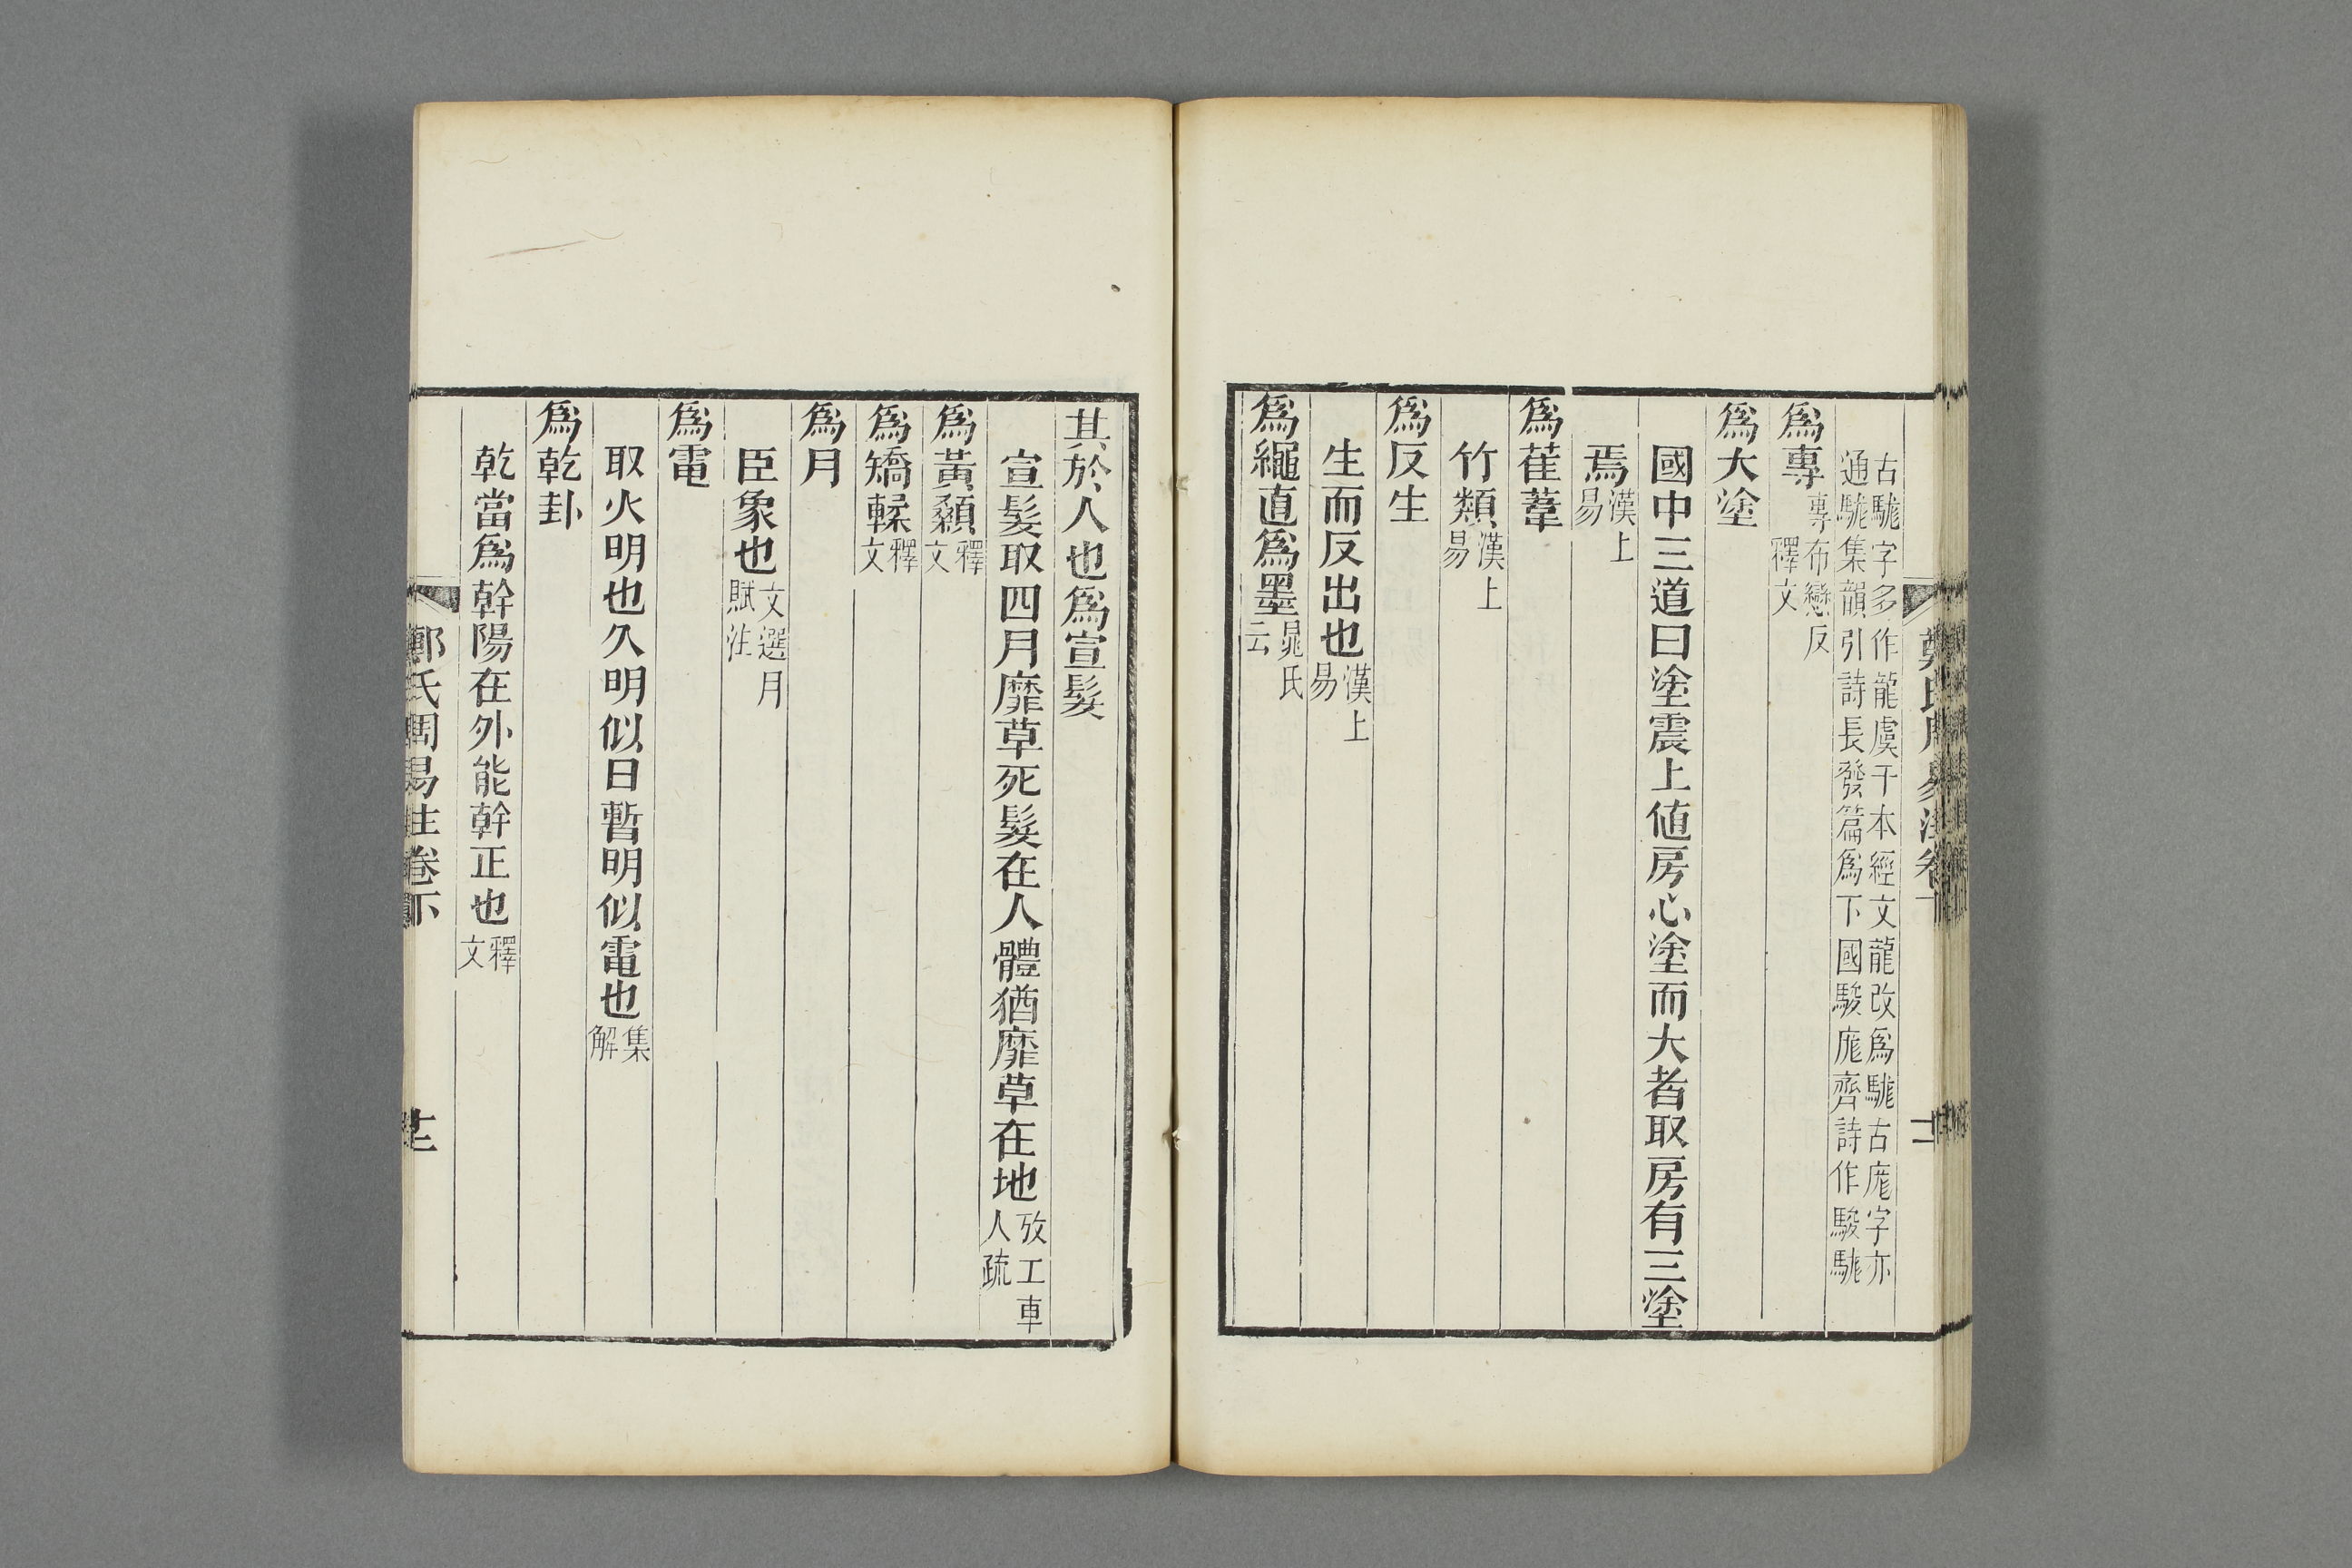 古駹字多作龍虞干本經文龍改爲駹古庬字亦
通駹集韻引詩長發篇爲下國駿庬齊詩作駿駹
爲專專布戀反釋文
爲大塗
國中三道曰塗震上値房心塗而大者取房有三塗
焉漢上易
爲萑葦
竹類漢上易
爲反生
生而反出也漢上易
爲繩直爲墨晁氏云
其於人也爲宣髮
宣髮取四月靡草死髮在人體猶靡草在地攷工車人疏
爲黃顙釋文
爲矯輮釋文
爲月
臣象也文選月賦注
爲電
取火明也久明似日暫明似電也集解
爲乾卦
乾當爲幹陽在外能幹正也釋文
鄭氏周易注卷下